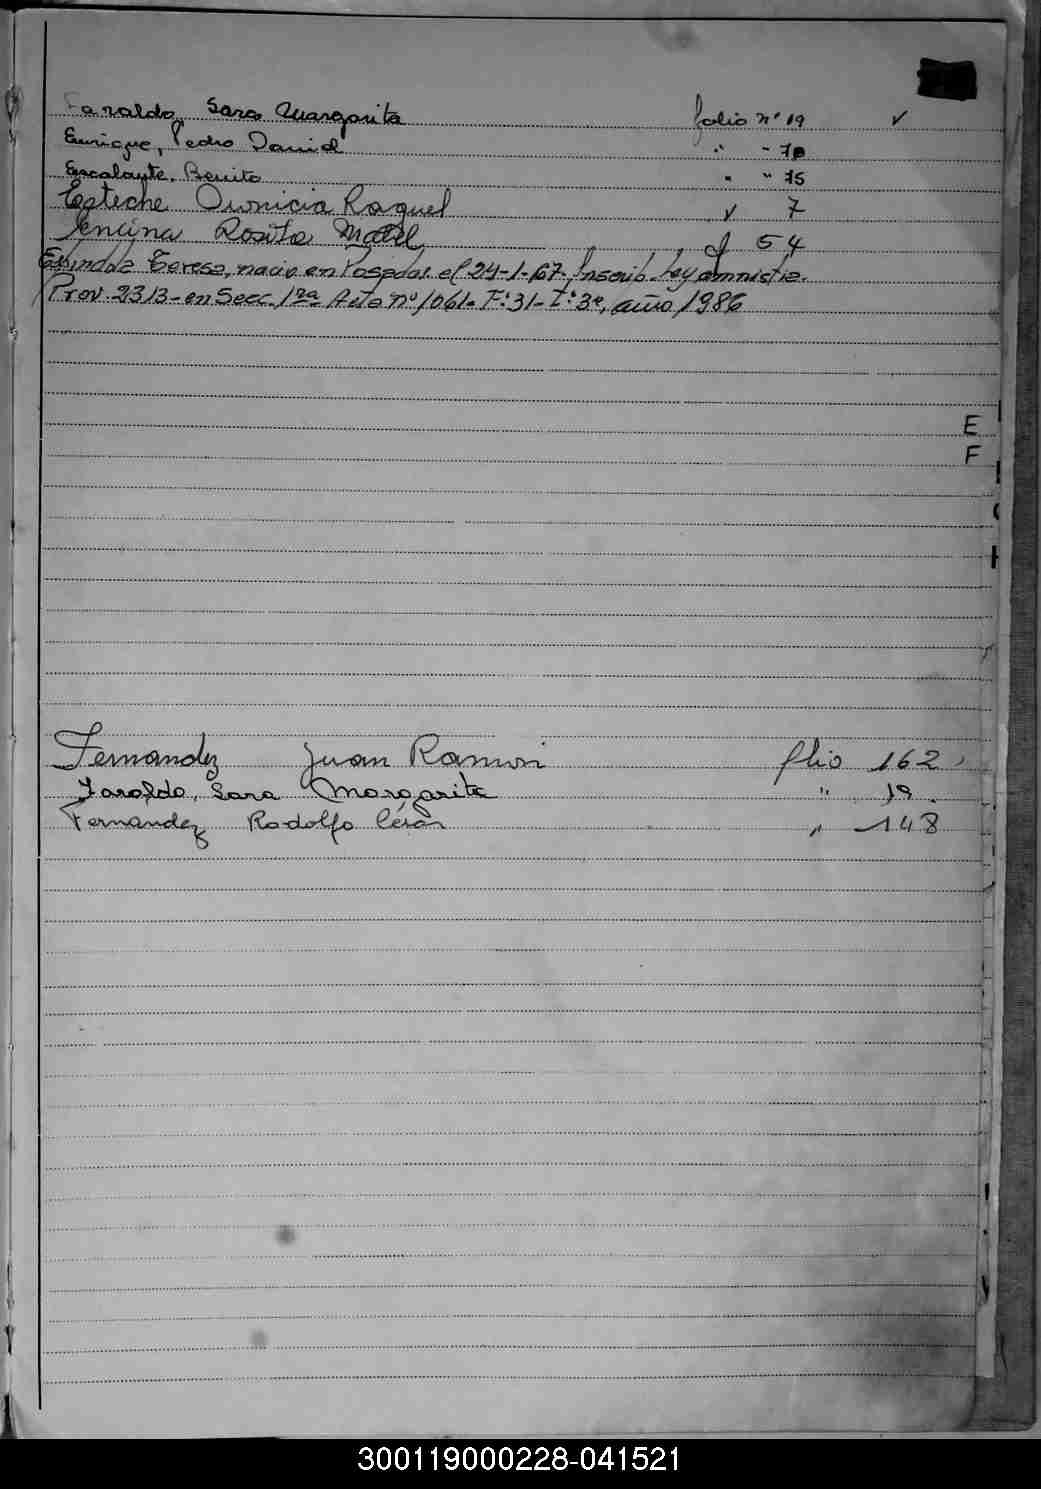 Faraldo, Sara Margarita folio nº 19 ✓
Enrique, Pedro Daniel " " 70
Escalante, Benito " " 75
Esteche Dionicia Raquel ✓ 7
Encina Rosita Mabel f 54
Teresa, nacio en Posadas el 24-1-67. Inscrib. Ley amnistia.
Prov. 2313- en Secc. 1ra Acta nº 1061- Fº: 31- Tº: 3º, año 1986
E
F
Fernandez Juan Ramon folio 162
Faraldo, Sara Margarita " 19.
Fernandez Rodolfo César " 148
300119000228-041521